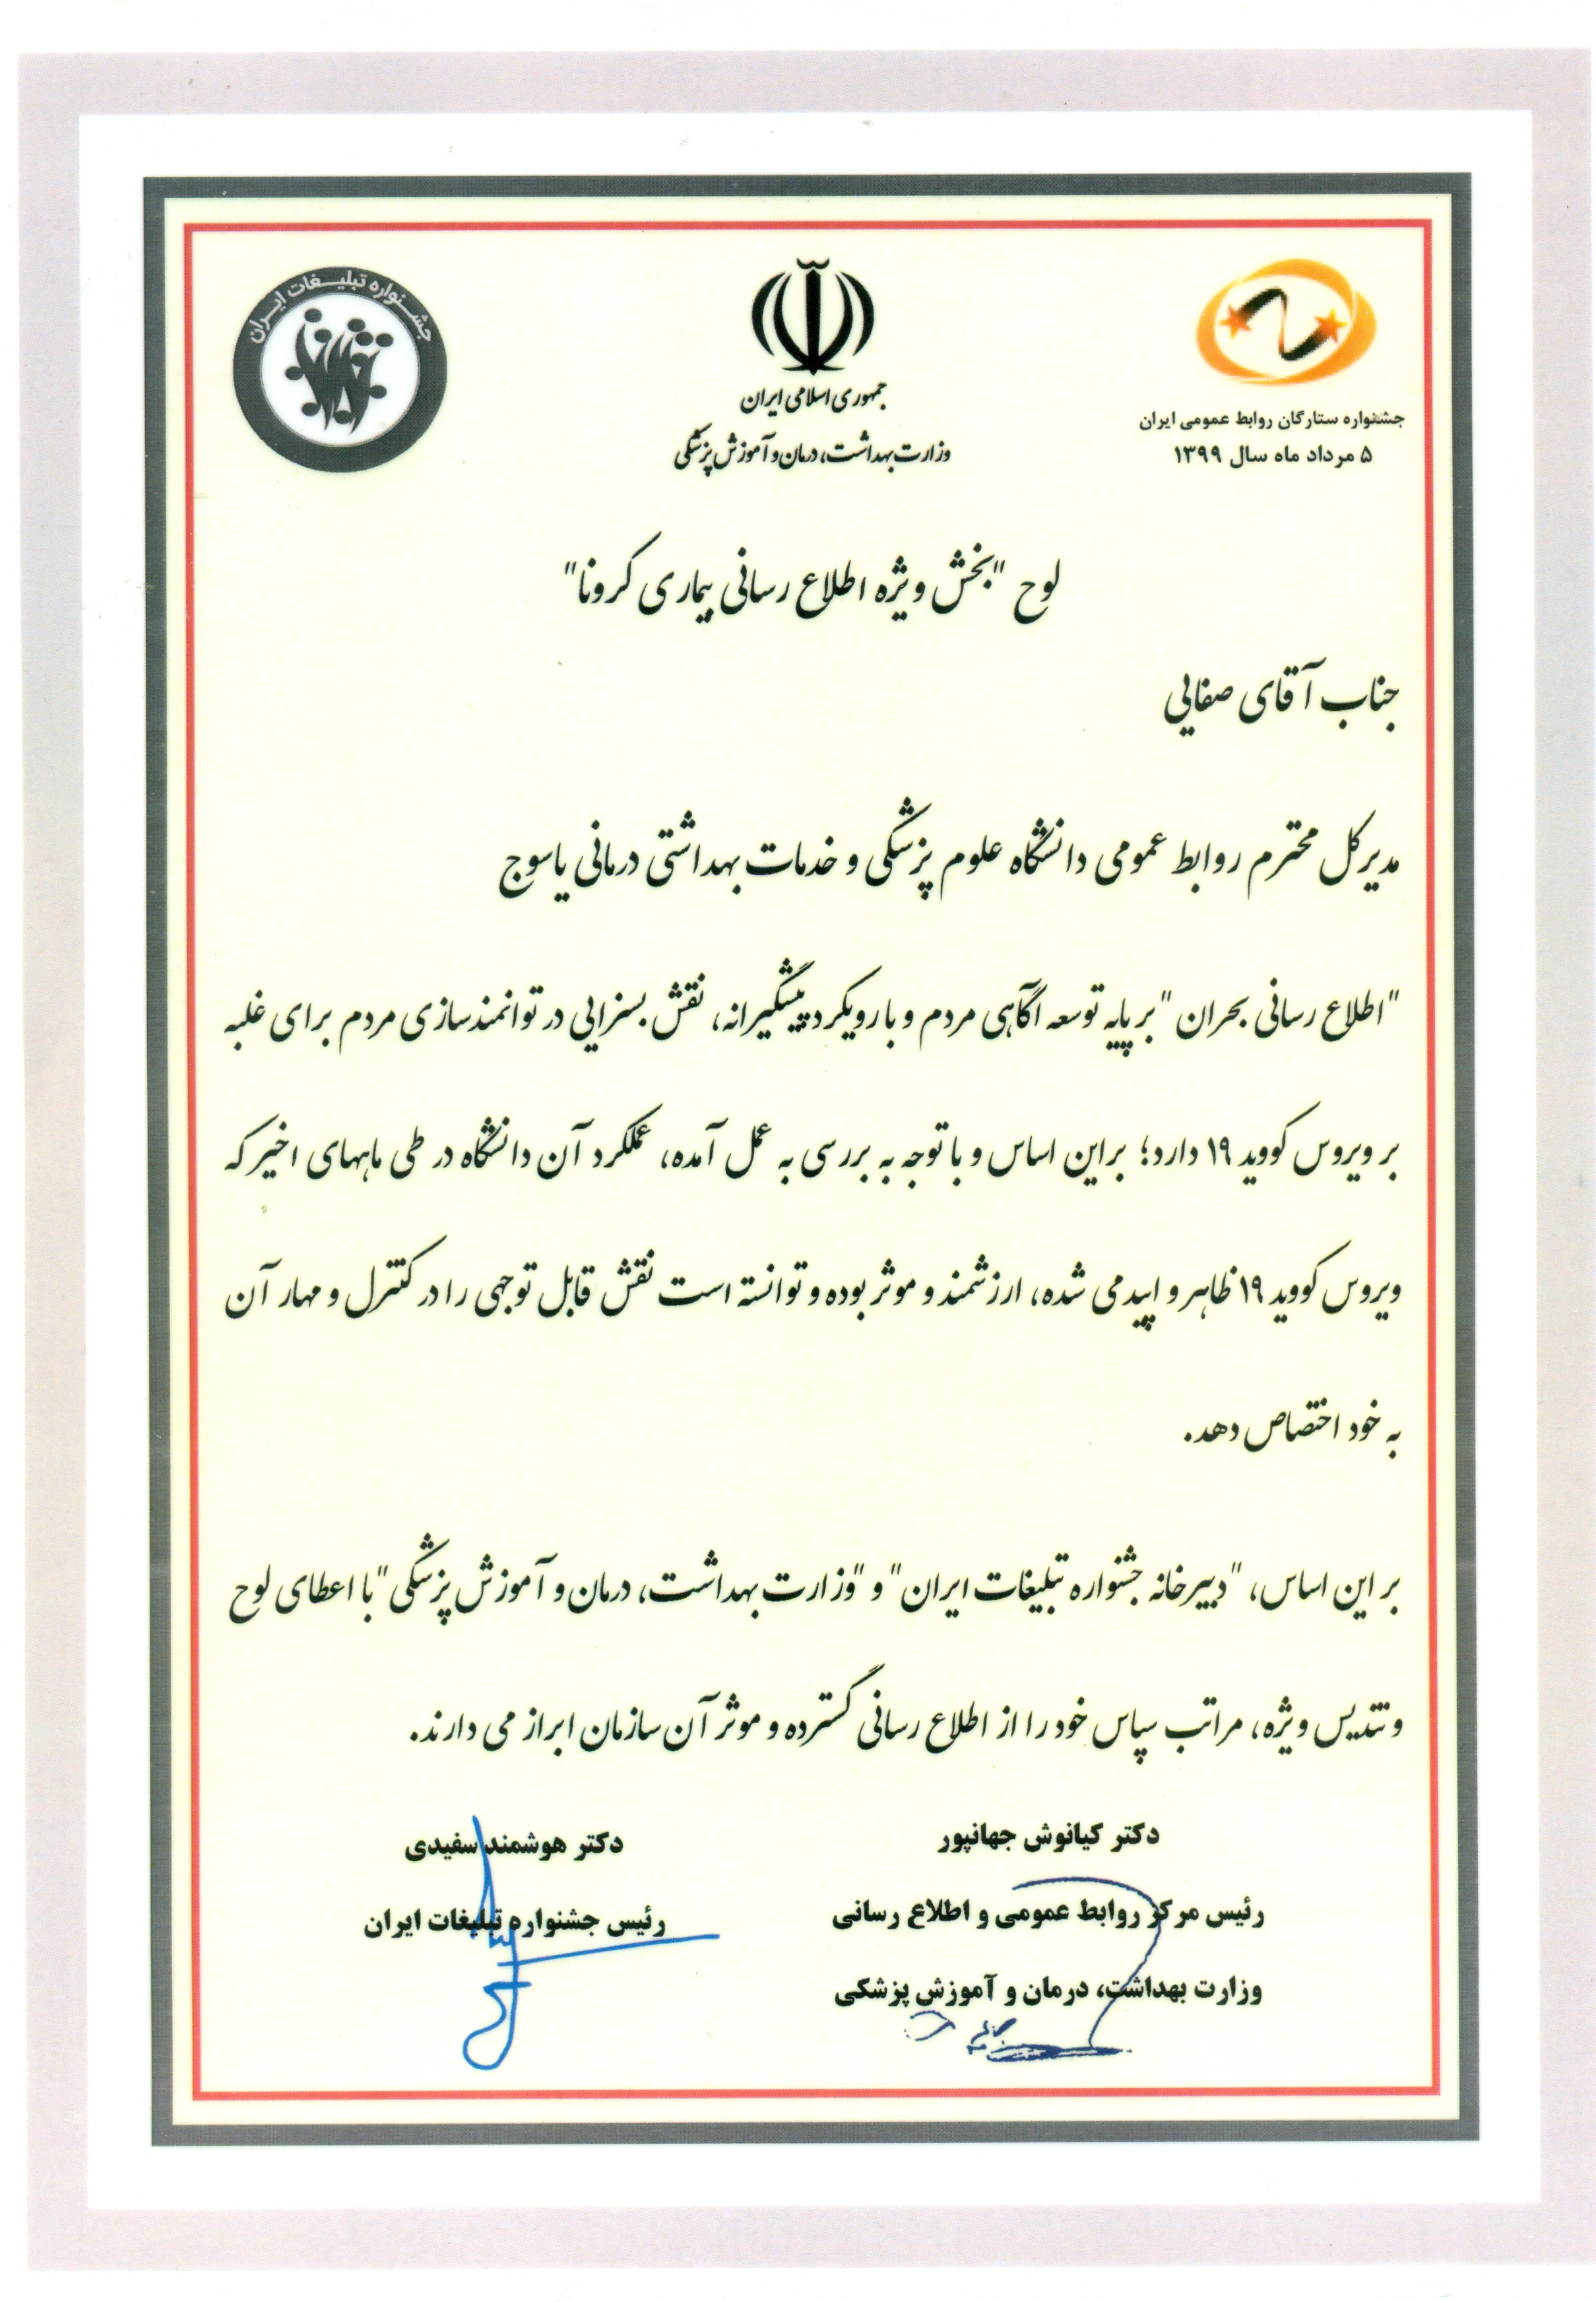 جشنواره تبلیغات ایران
جمهوری اسلامی ایران
وزارت بهداشت، درمان و آموزش پزشکی
جشنواره ستارگان روابط عمومی ایران
۵ مرداد ماه سال ۱۳۹۹
لوح "بخش ویژه اطلاع رسانی بیماری کرونا"
جناب آقای صفایی
مدیرکل محترم روابط عمومی دانشگاه علوم پزشکی و خدمات بهداشتی درمانی یاسوج
"اطلاع رسانی بحران" بر پایه توسعه آگاهی مردم و با رویکرد پیشگیرانه، نقش بسزایی در توانمندسازی مردم برای غلبه
بر ویروس کووید ۱۹ دارد؛ براین اساس و با توجه به بررسی به عمل آمده، عملکرد آن دانشگاه در طی ماههای اخیر که
ویروس کووید ۱۹ ظاهر و اپیدمی شده، ارزشمند و موثر بوده و توانسته است نقش قابل توجهی را در کنترل و مهار آن
به خود اختصاص دهد.
بر این اساس، "دبیرخانه جشنواره تبلیغات ایران" و "وزارت بهداشت، درمان و آموزش پزشکی" با اعطای لوح
و تندیس ویژه، مراتب سپاس خود را از اطلاع رسانی گسترده و موثر آن سازمان ابراز می دارند.
دکتر کیانوش جهانپور
رئیس مرکز روابط عمومی و اطلاع رسانی
وزارت بهداشت، درمان و آموزش پزشکی
دکتر هوشمند سفیدی
رئیس جشنواره تبلیغات ایران